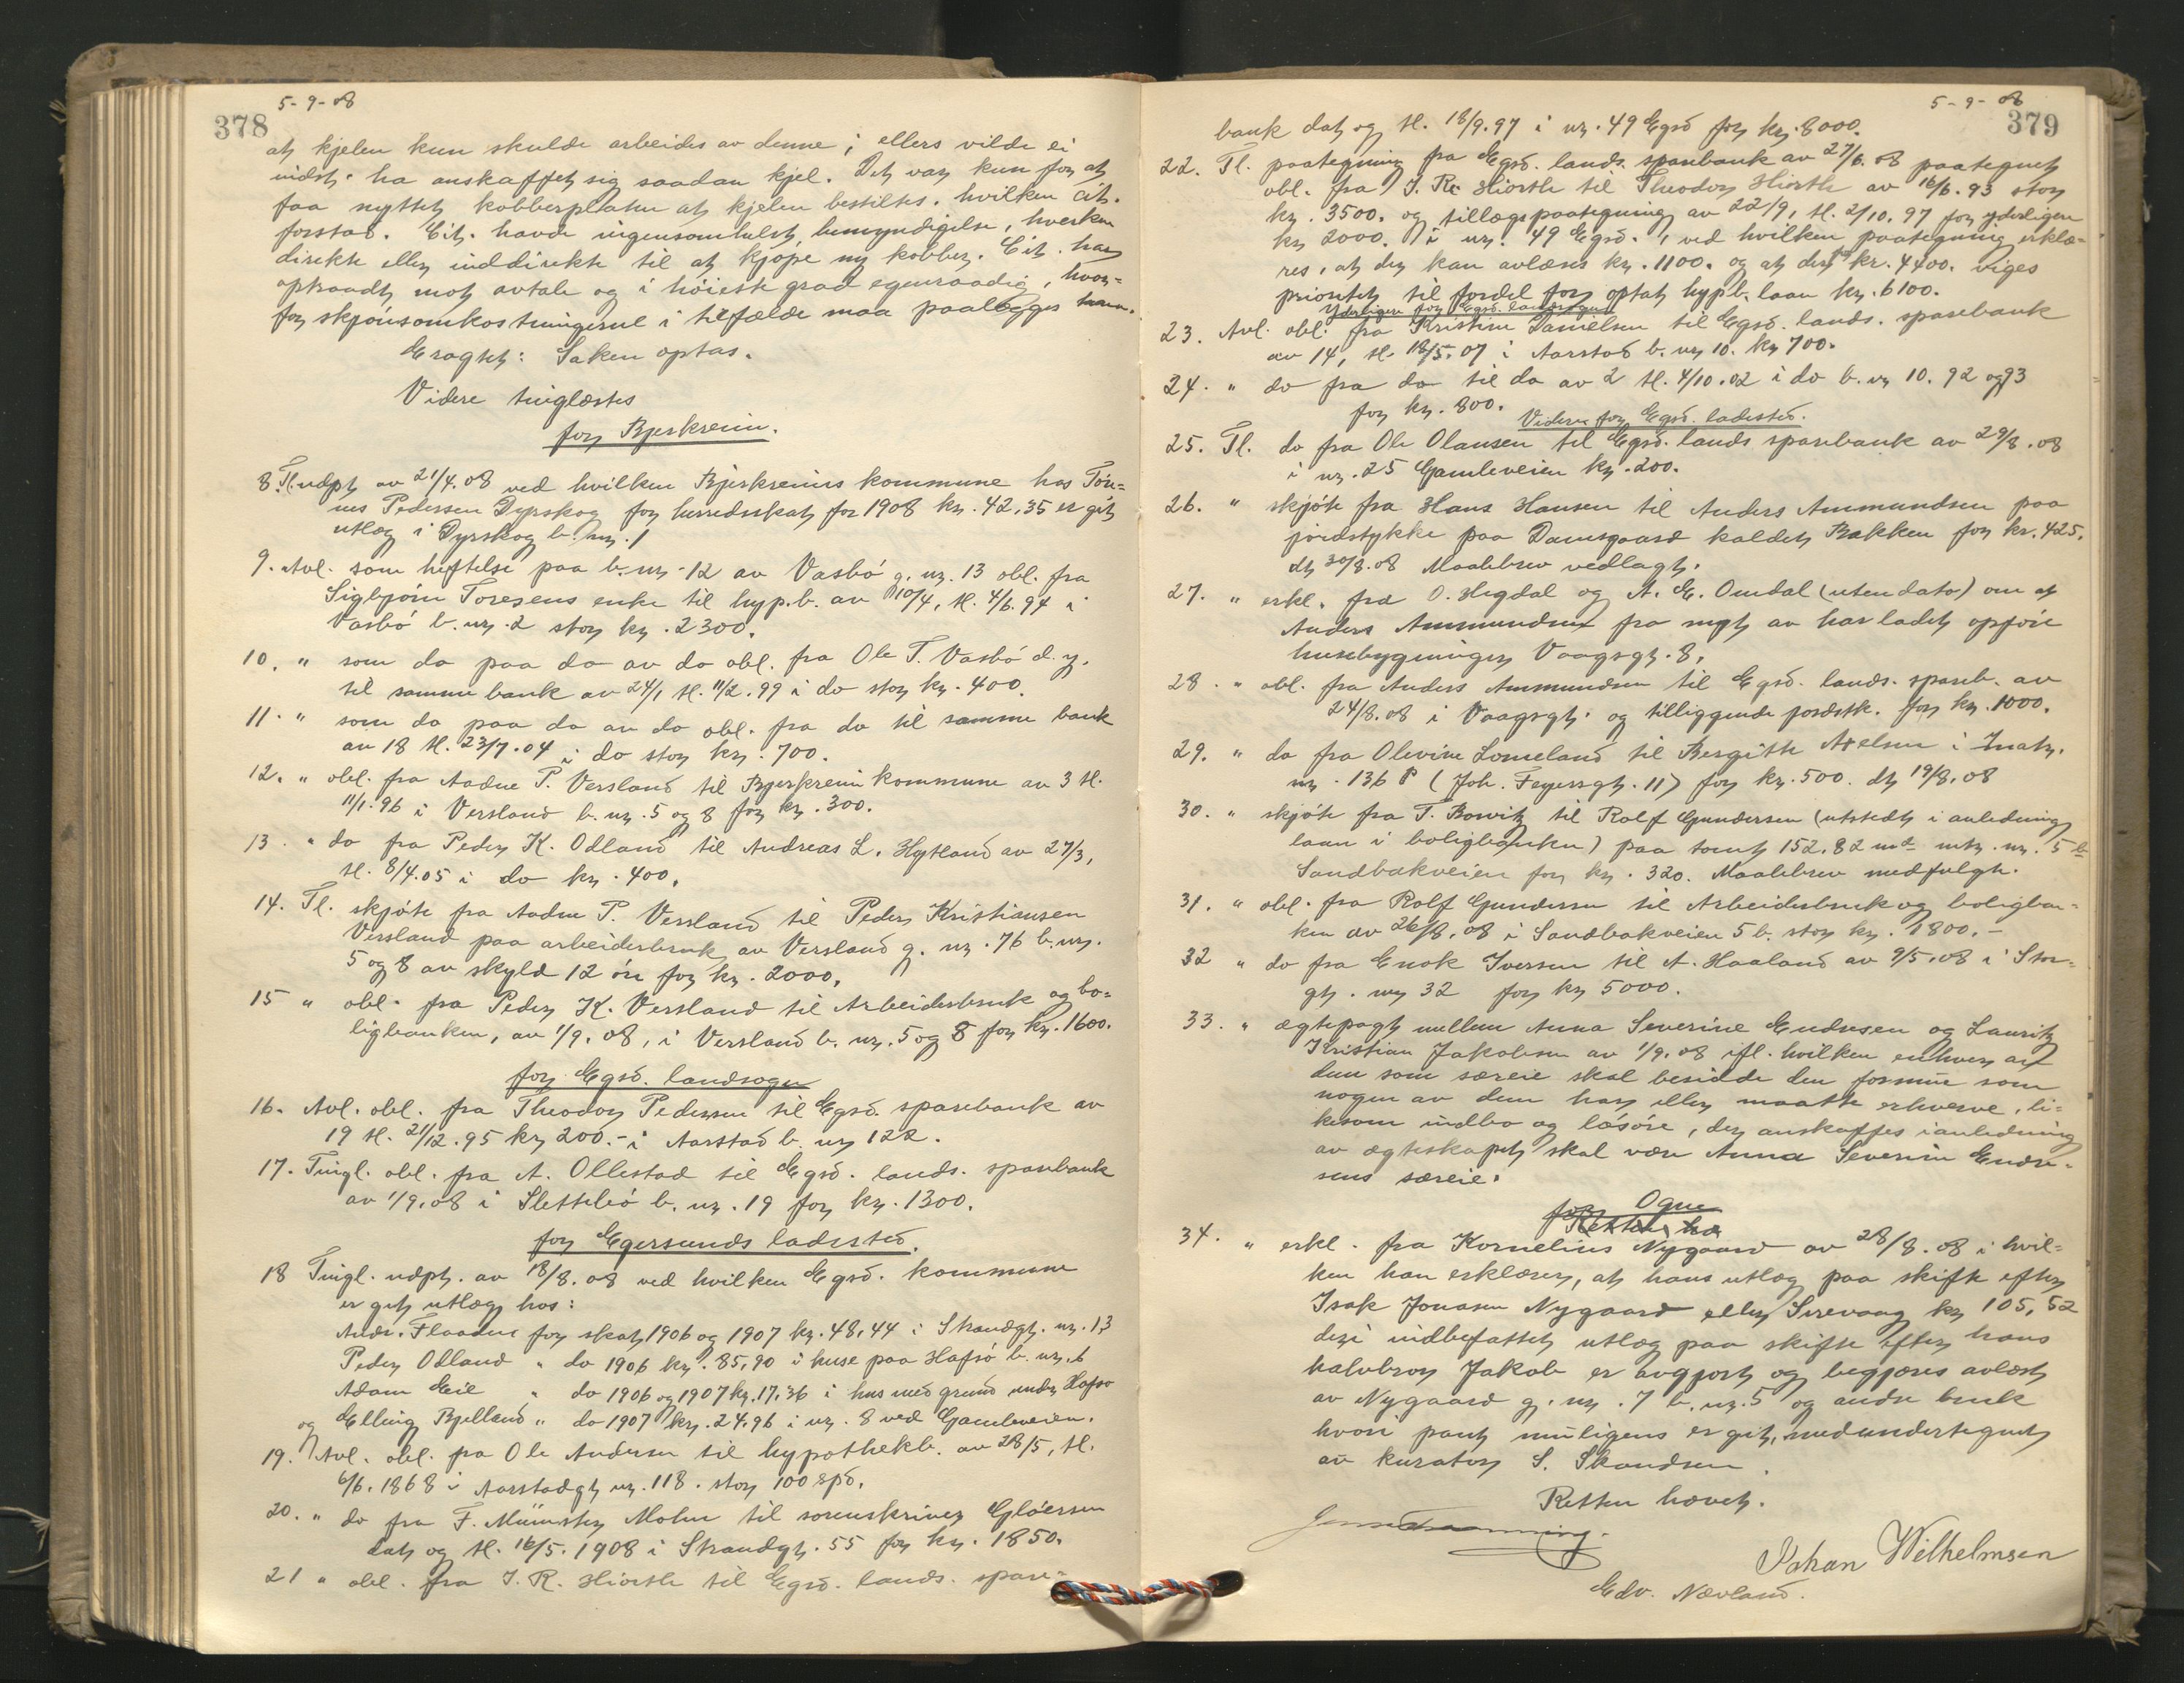 5-9-08
378
at kjelen kun skulde arbeides av denne; ellers vilde ei
indst. ha anskaffet sig saadan kjel. Det var kun for at
faa nyttet kobberplaten at kjelen bestiltes. hvilken cit.
forstod. Cit. havde ingensomhelst bemyndigelse, hverken
direkte eller inddirekte til at kjøpe ny kobber. Cit. har
optraadt mot avtale og i höieste grad egenraadig, hvor-
for skjönsomkostningerne i tilfælde maa paalægges ham.
Eragtet: Saken optas.
Videre tinglæstes
for Bjerkreim.
8. Tl. udpt av 21/4.08 ved hvilken Bjerkreims kommune hos Tön-
nes Pedersen Dyrskog for herredsskat for 1908 kr. 42,35 er git
utlæg i Dyrskog b. nr. 1
9. Avl. som heftelse paa b. nr. 12 av Vasbö g. nr. 13 obl. fra
Sigbjörn Toresens enke til hyp.b. av 10/4, tl. 4/6.94 i
Vasbö b. nr. 2 stor kr. 2300.
10. " som do paa do av do obl. fra Ole T. Vasbö d. y.
til samme bank av 24/1 tl. 11/2.99 i do stor kr. 400.
11. " som do paa do av do obl. fra do til samme bank
av 18 tl. 23/7.04 i do stor kr. 700.
12. " obl. fra Aadne P. Versland til Bjerkreim kommune av 3 tl.
11/1.96 i Versland b. nr. 5 og 8 for kr. 300.
13. " do fra Peder K. Odland til Andreas L. Hytland av 27/3,
tl. 8/4.05 i do kr. 400.
14. Tl. skjöte fra Aadne P. Versland til Peder Kristiansen
Versland paa arbeiderbruk av Versland g. nr. 76 b. nr.
5 og 8 av skyld 12 öre for kr. 2000.
15 " obl. fra Peder K. Versland til Arbeiderbruk og bo-
ligbanken, av 1/9.08, i Versland b. nr. 5 og 8 for kr. 1600.
for Egsd. landsogn
16. Avl. obl. fra Theodor Pedersen til Egsd. sparebank av
19 tl. 21/12.95 kr 200.- i Aarstad b. nr 122.
17. Tingl. obl. fra A. Ollestad til Egsd. lands. sparebank
av 1/9.08 i Slettebö b. nr. 19 for kr. 1300.
for Egersunds ladested.
18 Tingl. udpt. av 18/8.08 ved hvilken Egsd. kommune
er git utlæg hos:
Andr. Flaaden for skat 1906 og 1907 kr. 48,44 i Strandgt. nr. 13
Peder Odland " do 1906 kr. 85,90 i huse paa Hafsö b. nr. 6
Adam Eeie " do 1906 og 1907 kr. 17,36 i hus med grund under Hafsö
og Elling Bjelland " do 1907 kr. 24,96 i nr. 8 ved Gamleveien.
19. Avl. obl. fra Ole Andersen til hypothekb. av 28/5, tl.
6/6.1868 i Aarstadgt nr. 118. stor 100 spd.
20. " do fra F. Münster Mohn til sorenskriver Gloersen
dat og tl. 16/5.1908 i Strandgt. 55 for kr. 1850.
21 " obl. fra J. R. Hiorth til Egsd. lands. spare-
5-9-08
379
bank dat og tl. 18/9.97 i nr. 49 Egsd for kr. 8000.
22. Tl. paategning fra Egsd. lands. sparebank av 27/6.08 paategnet
obl. fra J. R. Hiorth til Theodor Hiorth av 16/6.93 stor
kr. 3500. og tillægspaategning av 22/9, tl. 2/10.97 for yderligere
kr 2000. i nr. 49 Egsd., ved hvilken paategning erklæ-
res, at der kan avlæses kr. 1100. og at dets kr. 4400. viges
prioritet til fordel for optat hypb. laan kr. 6100.
Yderligere for Egsd. landsogn
23. Avl. obl. fra Kristine Danielsen til Egsd. lands. sparebank
av 14, tl. 18/5.07 i Aarstad b. nr 10. kr 700.
24. " do fra do til do av 2 tl. 4/10.02 i do b. nr 10. 92 og 93
for kr. 800.
Videre for Egsd. ladested.
25. Tl. do fra Ole Olausen til Egsd. lands sparebank av 29/8.08
i nr. 25 Gamleveien kr. 200.
26. " skjöte fra Hans Hansen til Anders Ammundsen paa
jordstykke paa Damsgaard kaldet Bakken for kr. 425.
dt 30/8.08 Maalebrev vedlagt.
27. " erkl. fra O. Hegdal og A. E. Omdal (uten dato) om at
Anders Ammundsen fra nyt av har ladet opföre
husebygningen Vaagsgt. 8.
28. " obl. fra Anders Ammundsen til Egsd. lands. spareb. av
24/8.08 i Vaagsgt. og tilliggende jordstk. for kr. 1000.
29. " do fra Olevine Lomeland til Bergitte Axelsen i Matr.
nr. 136 P (Joh. Feyersgt. 11) for kr. 500. dt 19/8.08
30. " skjöte fra T. Bowitz til Rolf Gundersen (utstedt i anledning
laan i boligbanken) paa tomt 152.82 m2 mtr. nr. 5 b
Sandbakveien for kr. 320. Maalebrev medfulgte.
31. " obl. fra Rolf Gundersen til Arbeiderbruk og boligban-
ken av 26/8.08 i Sandbakveien 5 b. stor kr. 1800.-
32 " do fra Enok Iversen til A. Haaland av 9/5.08 i Stor-
gt. nr 32 for kr 5000.
33. " ægtepagt mellem Anna Severine Endresen og Lauritz
Kristian Jakobsen av 1/9.08 ifl. hvilken enhver av
dem som særeie skal besidde den formue som
nogen av dem har eller maatte erhverve, li-
kesom indbo og lösöre, der anskaffes i anledning
av ægteskapet skal være Anna Severine Endre-
sens særeie.
for Ogne
Retten hæ
34. " erkl. fra Kornelius Nygaard av 28/8.08 i hvil-
ken han erklærer, at hans utlæg paa skifte efter
Isak Jonasen Nygaard eller Sirevaag kr 105,52
deri indbefattet utlæg paa skifte efter hans
halvbror Jakob er avgjort og begjæres avlæst
av Nygaard g. nr. 7 b. nr. 5 og andre bruk
hvori pant muligens er git, medundertegnet
av kurator S. Skandsen.
Retten hævet.
Johan Wilhelmsen
Edv. Nævland.